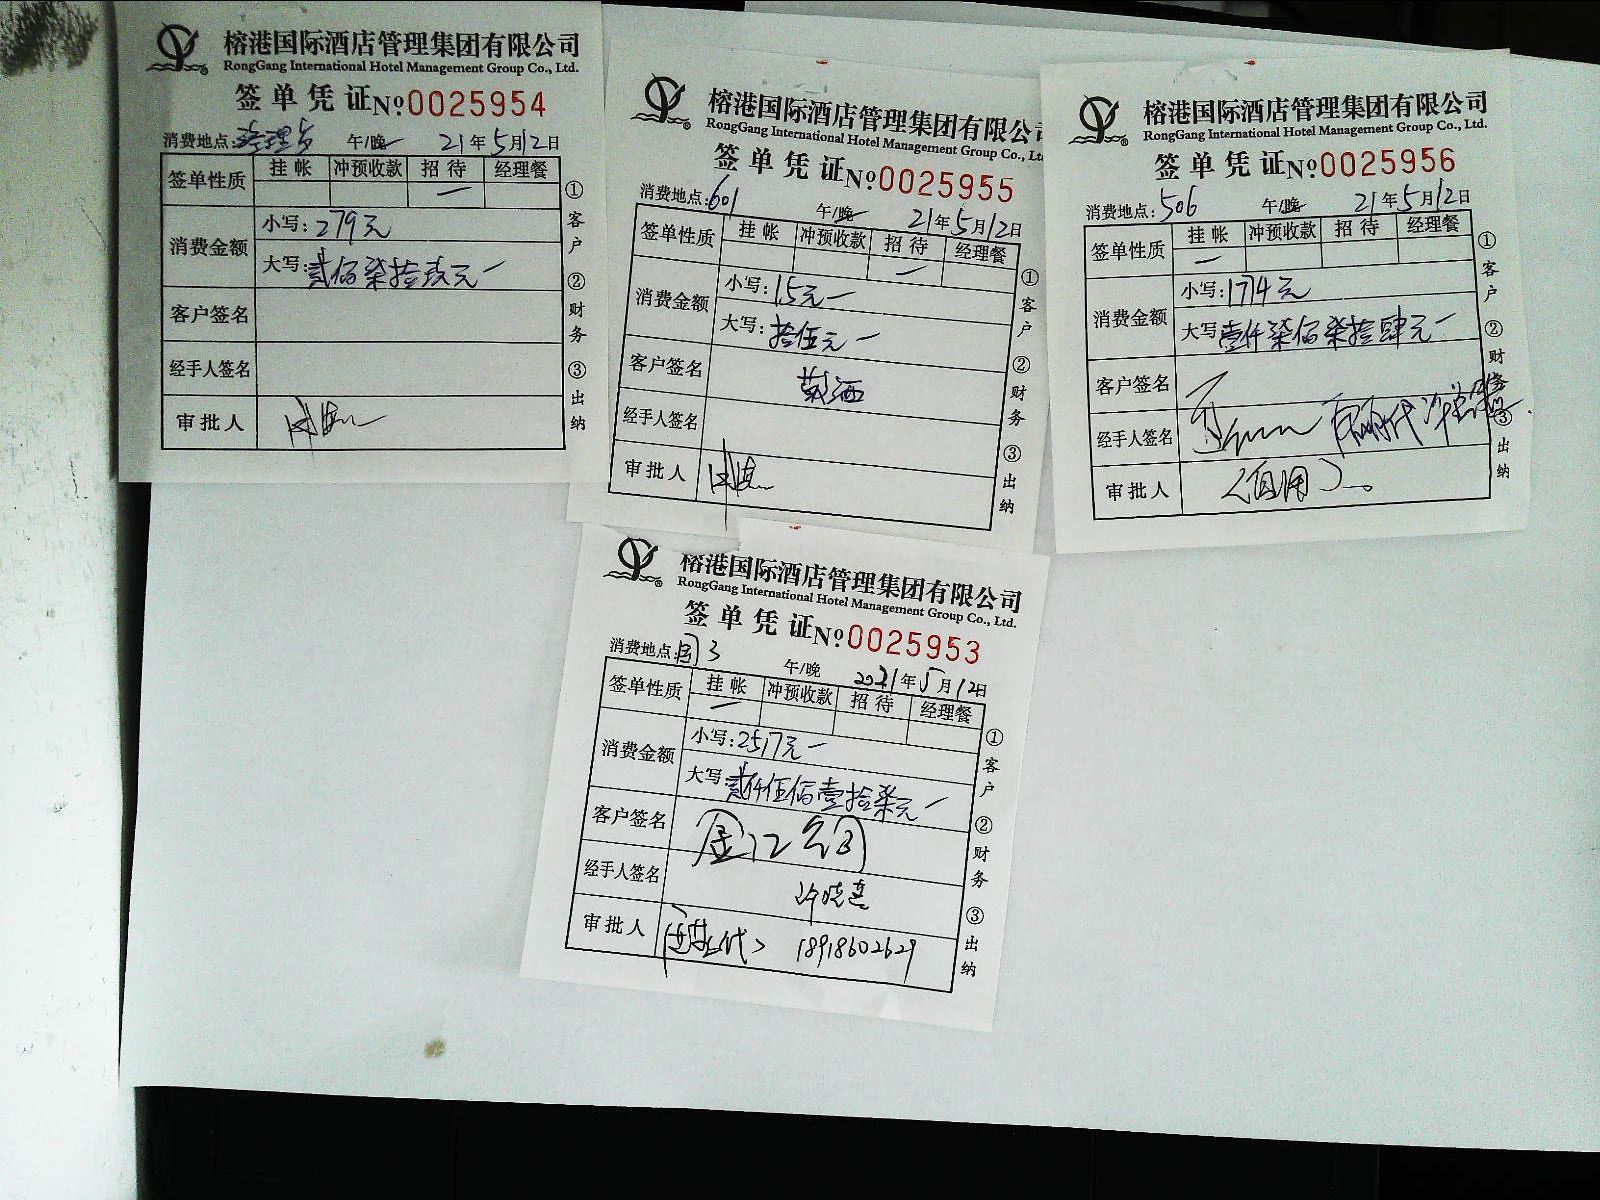 榕港国际酒店管理集团有限公司
RongGang International Hotel Management Group Co., Ltd.
签单凭证 No 0025954
消费地点: 午/晚 21年5月12日
签单性质 挂帐 冲预收款 招待 经理餐
消费金额 小写:279元
大写:贰佰柒拾玖元
客户签名
经手人签名
审批人
①客户 ②财务 ③出纳
榕港国际酒店管理集团有限公司
RongGang International Hotel Management Group Co., Ltd.
签单凭证 No 0025955
消费地点:601 午/晚 21年5月12日
签单性质 挂帐 冲预收款 招待 经理餐
消费金额 小写:15元
大写:拾伍元
客户签名
经手人签名
审批人
①客户 ②财务 ③出纳
榕港国际酒店管理集团有限公司
RongGang International Hotel Management Group Co., Ltd.
签单凭证 No 0025956
消费地点:506 午/晚 21年5月12日
签单性质 挂帐 冲预收款 招待 经理餐
消费金额 小写:1774元
大写 壹仟柒佰柒拾肆元
客户签名
经手人签名
审批人
①客户 ②财务 ③出纳
榕港国际酒店管理集团有限公司
RongGang International Hotel Management Group Co., Ltd.
签单凭证 No 0025953
消费地点: 午/晚 2021年5月12日
签单性质 挂帐 冲预收款 招待 经理餐
消费金额 小写:2517元
大写:贰仟伍佰壹拾柒元
客户签名 金江公司
经手人签名
审批人 18918602629
①客户 ②财务 ③出纳